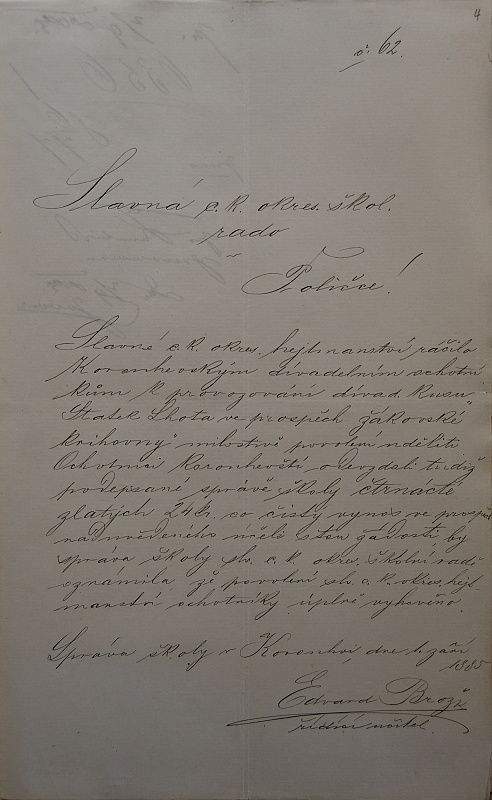 4
č. 62.
Slavná c. k. okres. škol.
rado
v
Poličce!
Slavné c. k. okres. hejtmanství ráčilo
Korouhevským divadelním ochotní
kům k provozování divad. kusu „
Statek Lhota ve prospěch žákovské
knihovny" milostivě povolení uděliti
Ochotníci korouhevští odevzdali tudíž
podepsané správě školy čtrnácte
zlatých 24 k. co čistý výnos ve prospěch
nadzmíněného účelu s tou žádostí by
správa školy slv. c. k. okres. školní radě
oznámila, že povolení slv. c. k. okres. hejt-
manství ochotníky úplně vyhověno.
Správa školy v Korouhvi, dne 1. září
1885
Edvard Brož
řídící učitel.